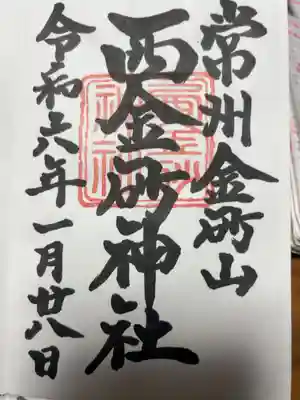 常州金砂山
西金砂神社
令和六年一月廿八日